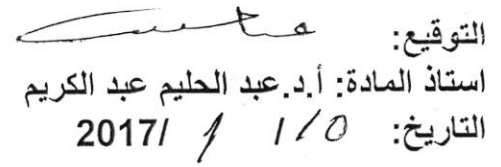 التوقيع:
استاذ المادة: أ.د.عبد الحليم عبد الكريم
التاريخ: / /2017